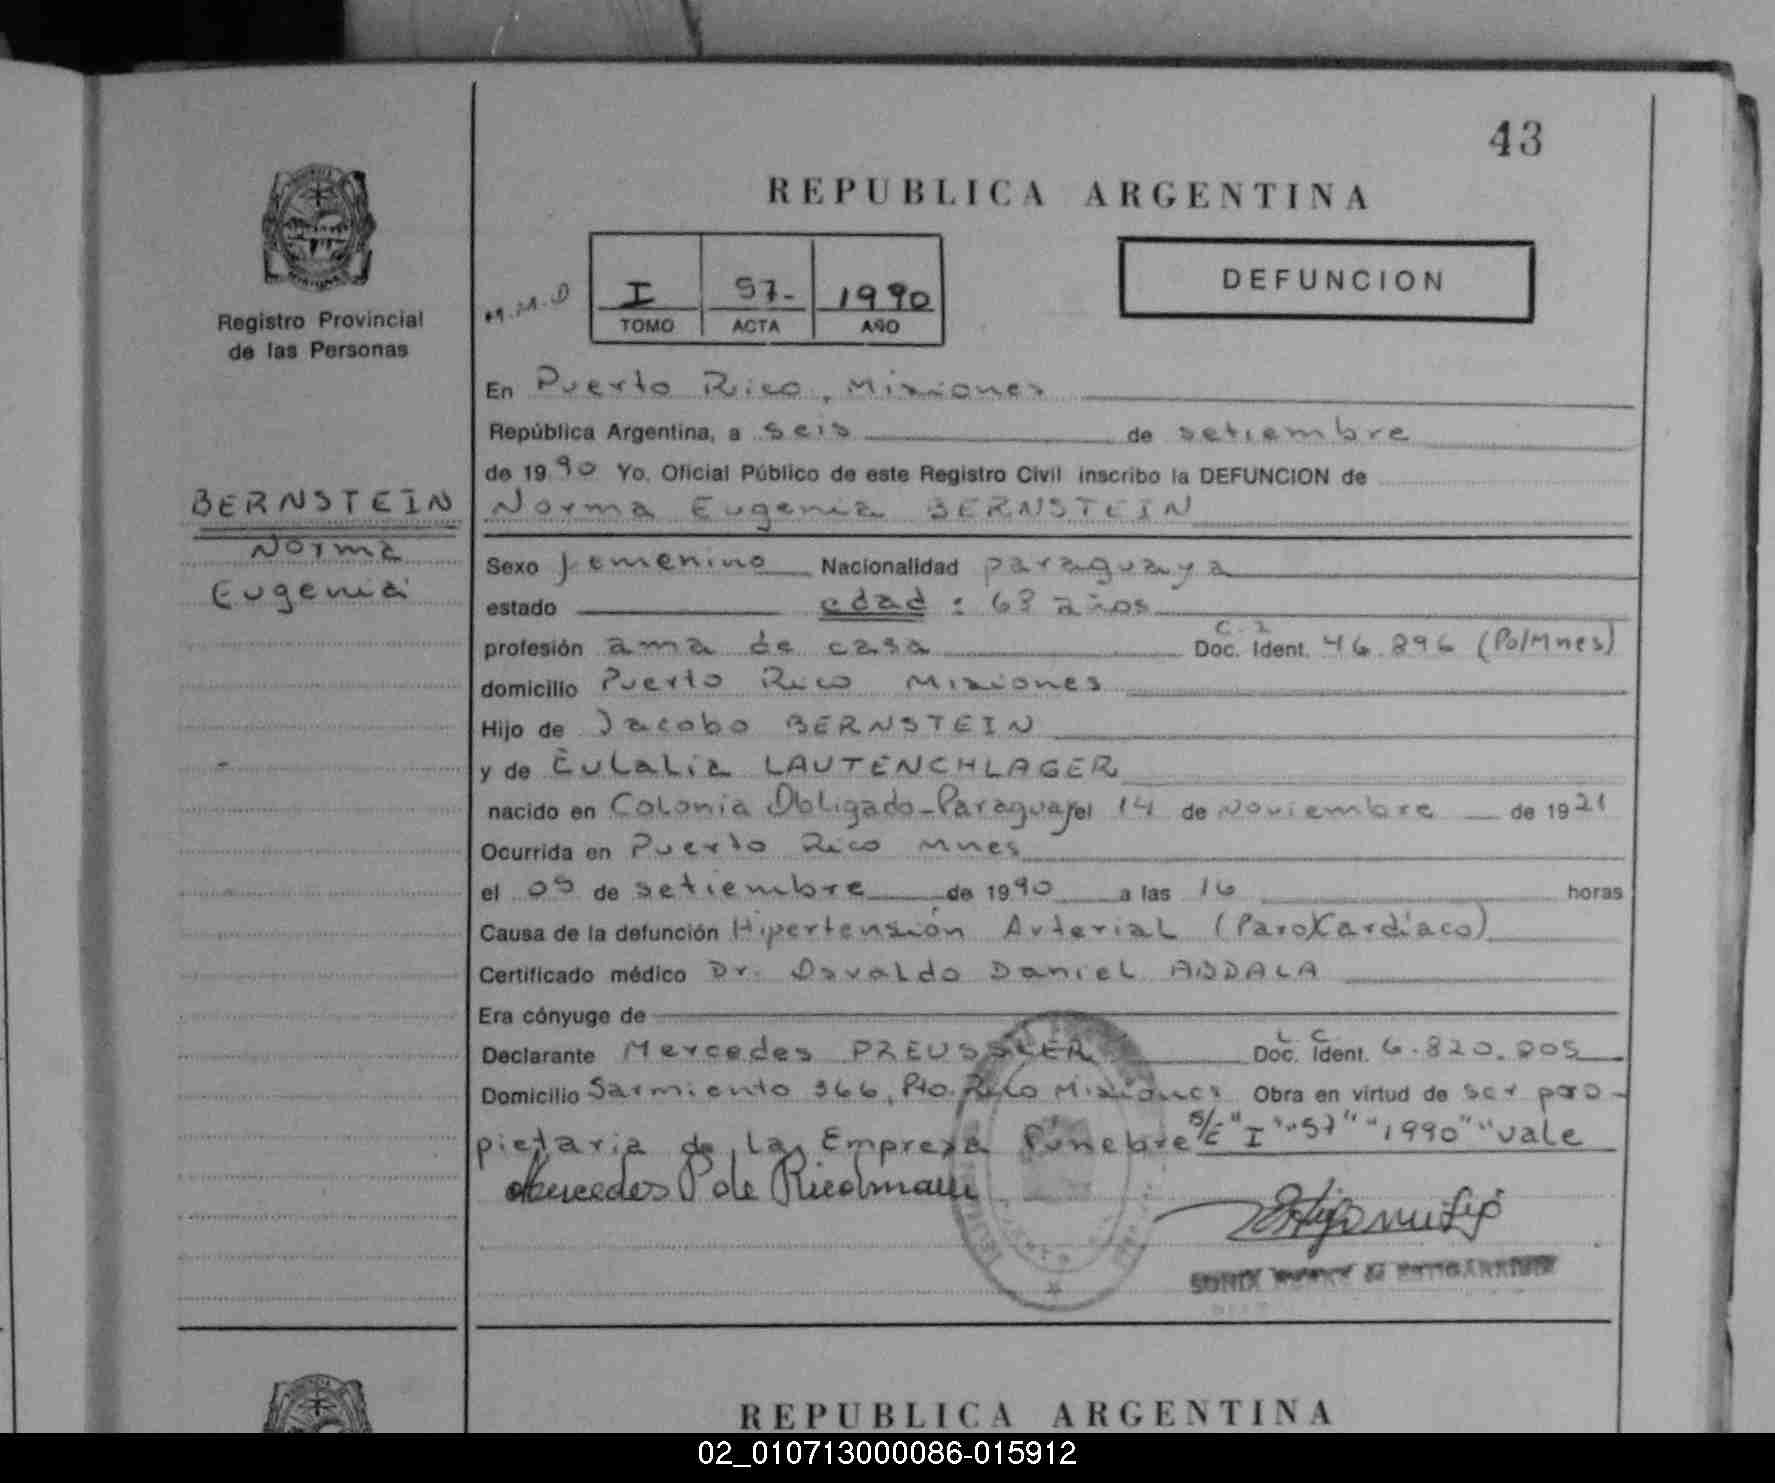 43
REPUBLICA ARGENTINA
I 57- 1990
TOMO ACTA AÑO
DEFUNCION
Registro Provincial
de las Personas
BERNSTEIN
Norma
Eugenia
En Puerto Rico, Misiones
República Argentina, a seis de setiembre
de 1990 Yo, Oficial Público de este Registro Civil inscribo la DEFUNCION de
Norma Eugenia BERNSTEIN
Sexo femenino Nacionalidad paraguaya
estado edad : 68 años
profesión ama de casa Doc. Ident. C.I 46.896 (Pol Mnes)
domicilio Puerto Rico Misiones
Hijo de Jacobo BERNSTEIN
y de Eulalia LAUTENCHLAGER
nacido en Colonia Obligado-Paraguay el 14 de noviembre de 1921
Ocurrida en Puerto Rico Mnes
el 05 de setiembre de 1990 a las 16 horas
Causa de la defunción Hipertensión Arterial (Paro Cardíaco)
Certificado médico Dr. Osvaldo Daniel ABDALA
Era cónyuge de
Declarante Mercedes PREUSSLER Doc. Ident. L C 6.820.805
Domicilio Sarmiento 366, Pto. Rico Misiones Obra en virtud de ser pro-
pietaria de la Empresa Fúnebre S/E "I" "57" "1990" "vale
Mercedes P de
REPUBLICA ARGENTINA
02_010713000086-015912